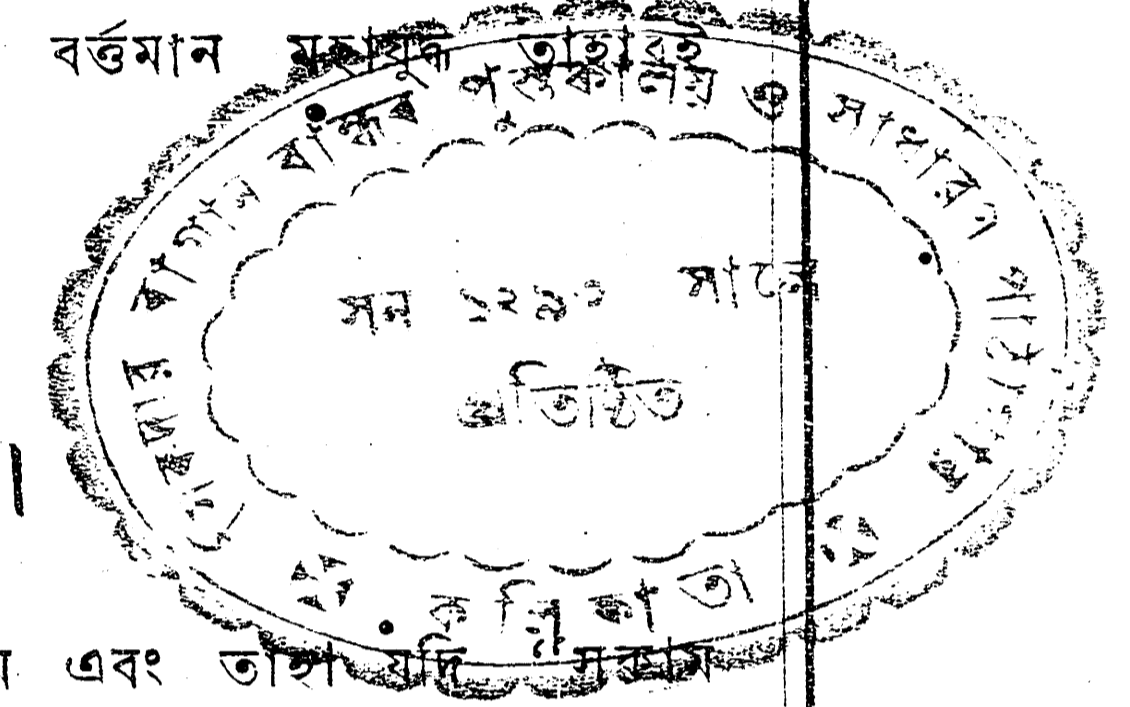 বর্ত্তমান মহাযুদ্ধ তাহারই
বাগান বান্ধব পুস্তকালয় ও সাধারণ পাঠাগার
সন সালে
প্রতিষ্ঠিত
কলিকাতা
।
এবং তাহা যদি